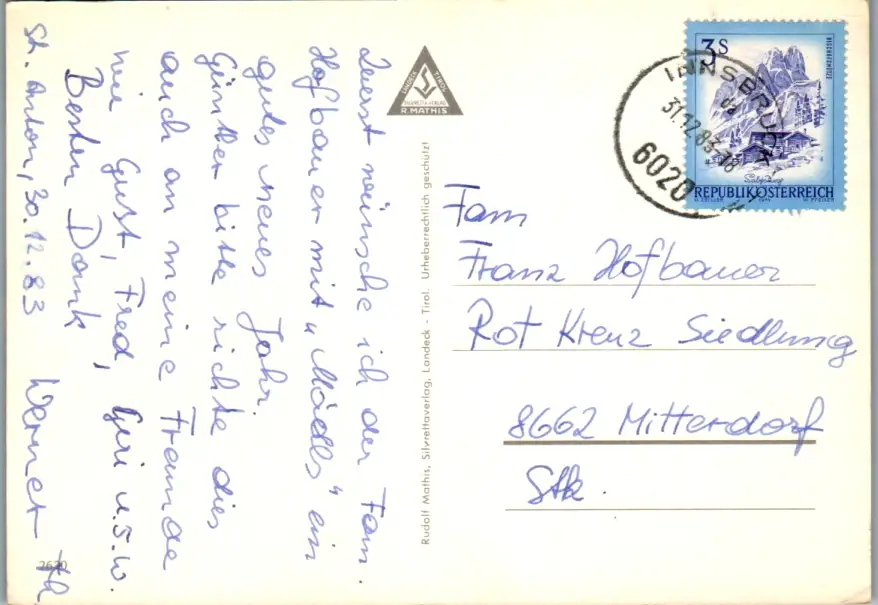 Zuerst wünsche ich der Fam.
Hofbauer mit "Mädls" ein
gutes neues Jahr.
Günther bitte richte dies
auch an meine Freunde
wie Gust, Fred, Geri u.s.w.
Besten Dank
St. Anton, 30.12.83 Werner
LANDECK TIROL
SILVRETTA-VERLAG
R. MATHIS
Rudolf Mathis, Silvrettaverlag, Landeck - Tirol. Urheberrechtlich geschützt
3 S
BISCHOFSMÜTZE
Salzburg
REPUBLIK ÖSTERREICH
INNSBRUCK
31.12.83-18
da
6020
Fam
Franz Hofbauer
Rot Kreuz Siedlung
8662 Mitterdorf
Stk.
2620